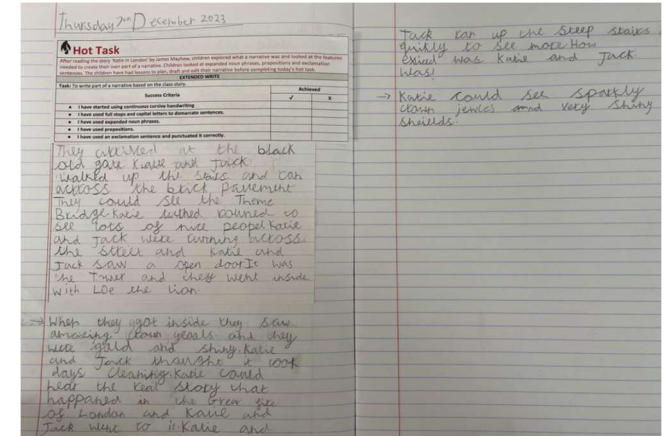 Thursday 7th December 2023
Hot Task
After reading the story 'Katie in London' by James Mayhew, children explored what a narrative was and looked at the features
needed to create their own part of a narrative. Children looked at expanded noun phrases, prepositions and exclamation
sentences. The children have had lessons to plan, draft and edit their narrative before completing today's hot task.
EXTENDED WRITE
Task: To write part of a narrative based on the class story.
Success Criteria
Achieved
✓ x
I have started using continuous cursive handwriting
I have used full stops and capital letters to demarcate sentences.
I have used expanded noun phrases.
I have used prepositions.
I have used an exclamation sentence and punctuated it correctly.
They arrived at the black
old gate Katie and Jack
walked up the stairs and ran
across the brick pavement
They could see the Theme
Bridge. Katie turned round to
see lots of nice peopel Katie
and Jack were turning across
the street and Katie and
Jack saw a open door It was
the Tower and they went inside
with the lion.
→ When they got inside they saw
amazing crown and they
were gold and shiny. Katie
and Jack thought it took
days cleaning. Katie could
hear the real story that
happaned in the Great fire
of London and Katie and
Jack went to it. Katie and
Jack ran up the steep stairs
quikly to see more How
was Katie and Jack
was!
→ Katie could see sparkly
crown and very shiny
sheilds.